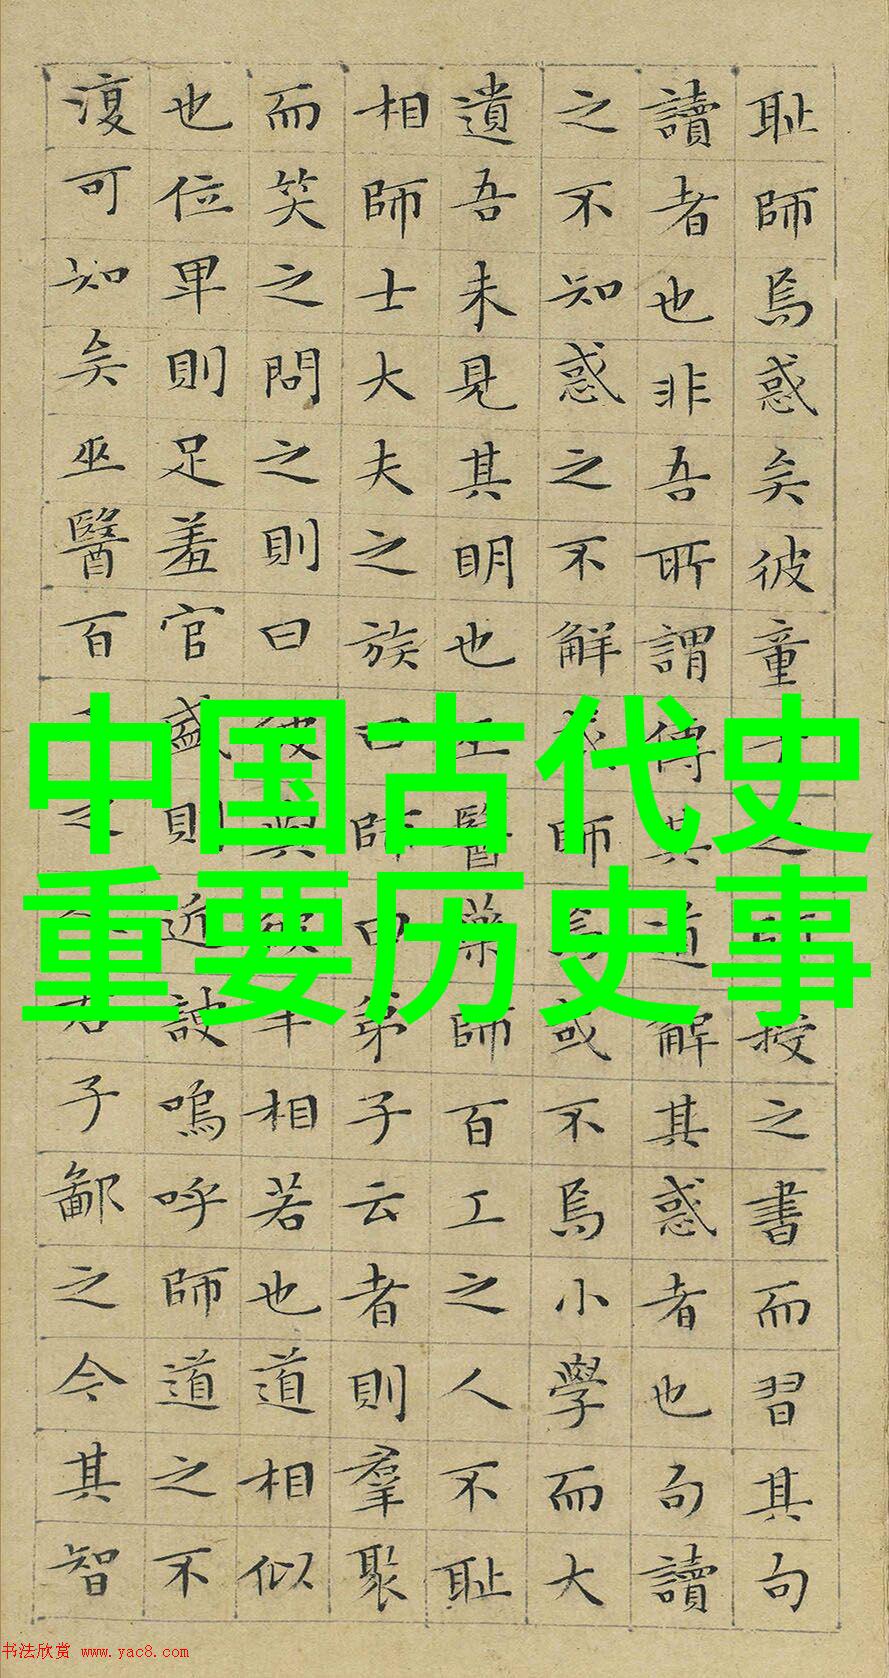 耻師焉惑矣彼童子之師授之書而習其句
讀者也非吾所謂傳其道解其惑者也句讀
之不知惑之不解或師焉或不焉小學而大
遺吾未見其明也巫醫藥師百工之人不耻
相師士大夫之族曰師曰弟子云者則羣聚
而笑之問之則曰彼與彼年相若也道相似
也位卑則足羞官盛則近諛嗚呼師道之不
復可知矣巫醫百工之人君子鄙之今其智
中国古代史
重要历史事
书法欣赏 www.yac8.com